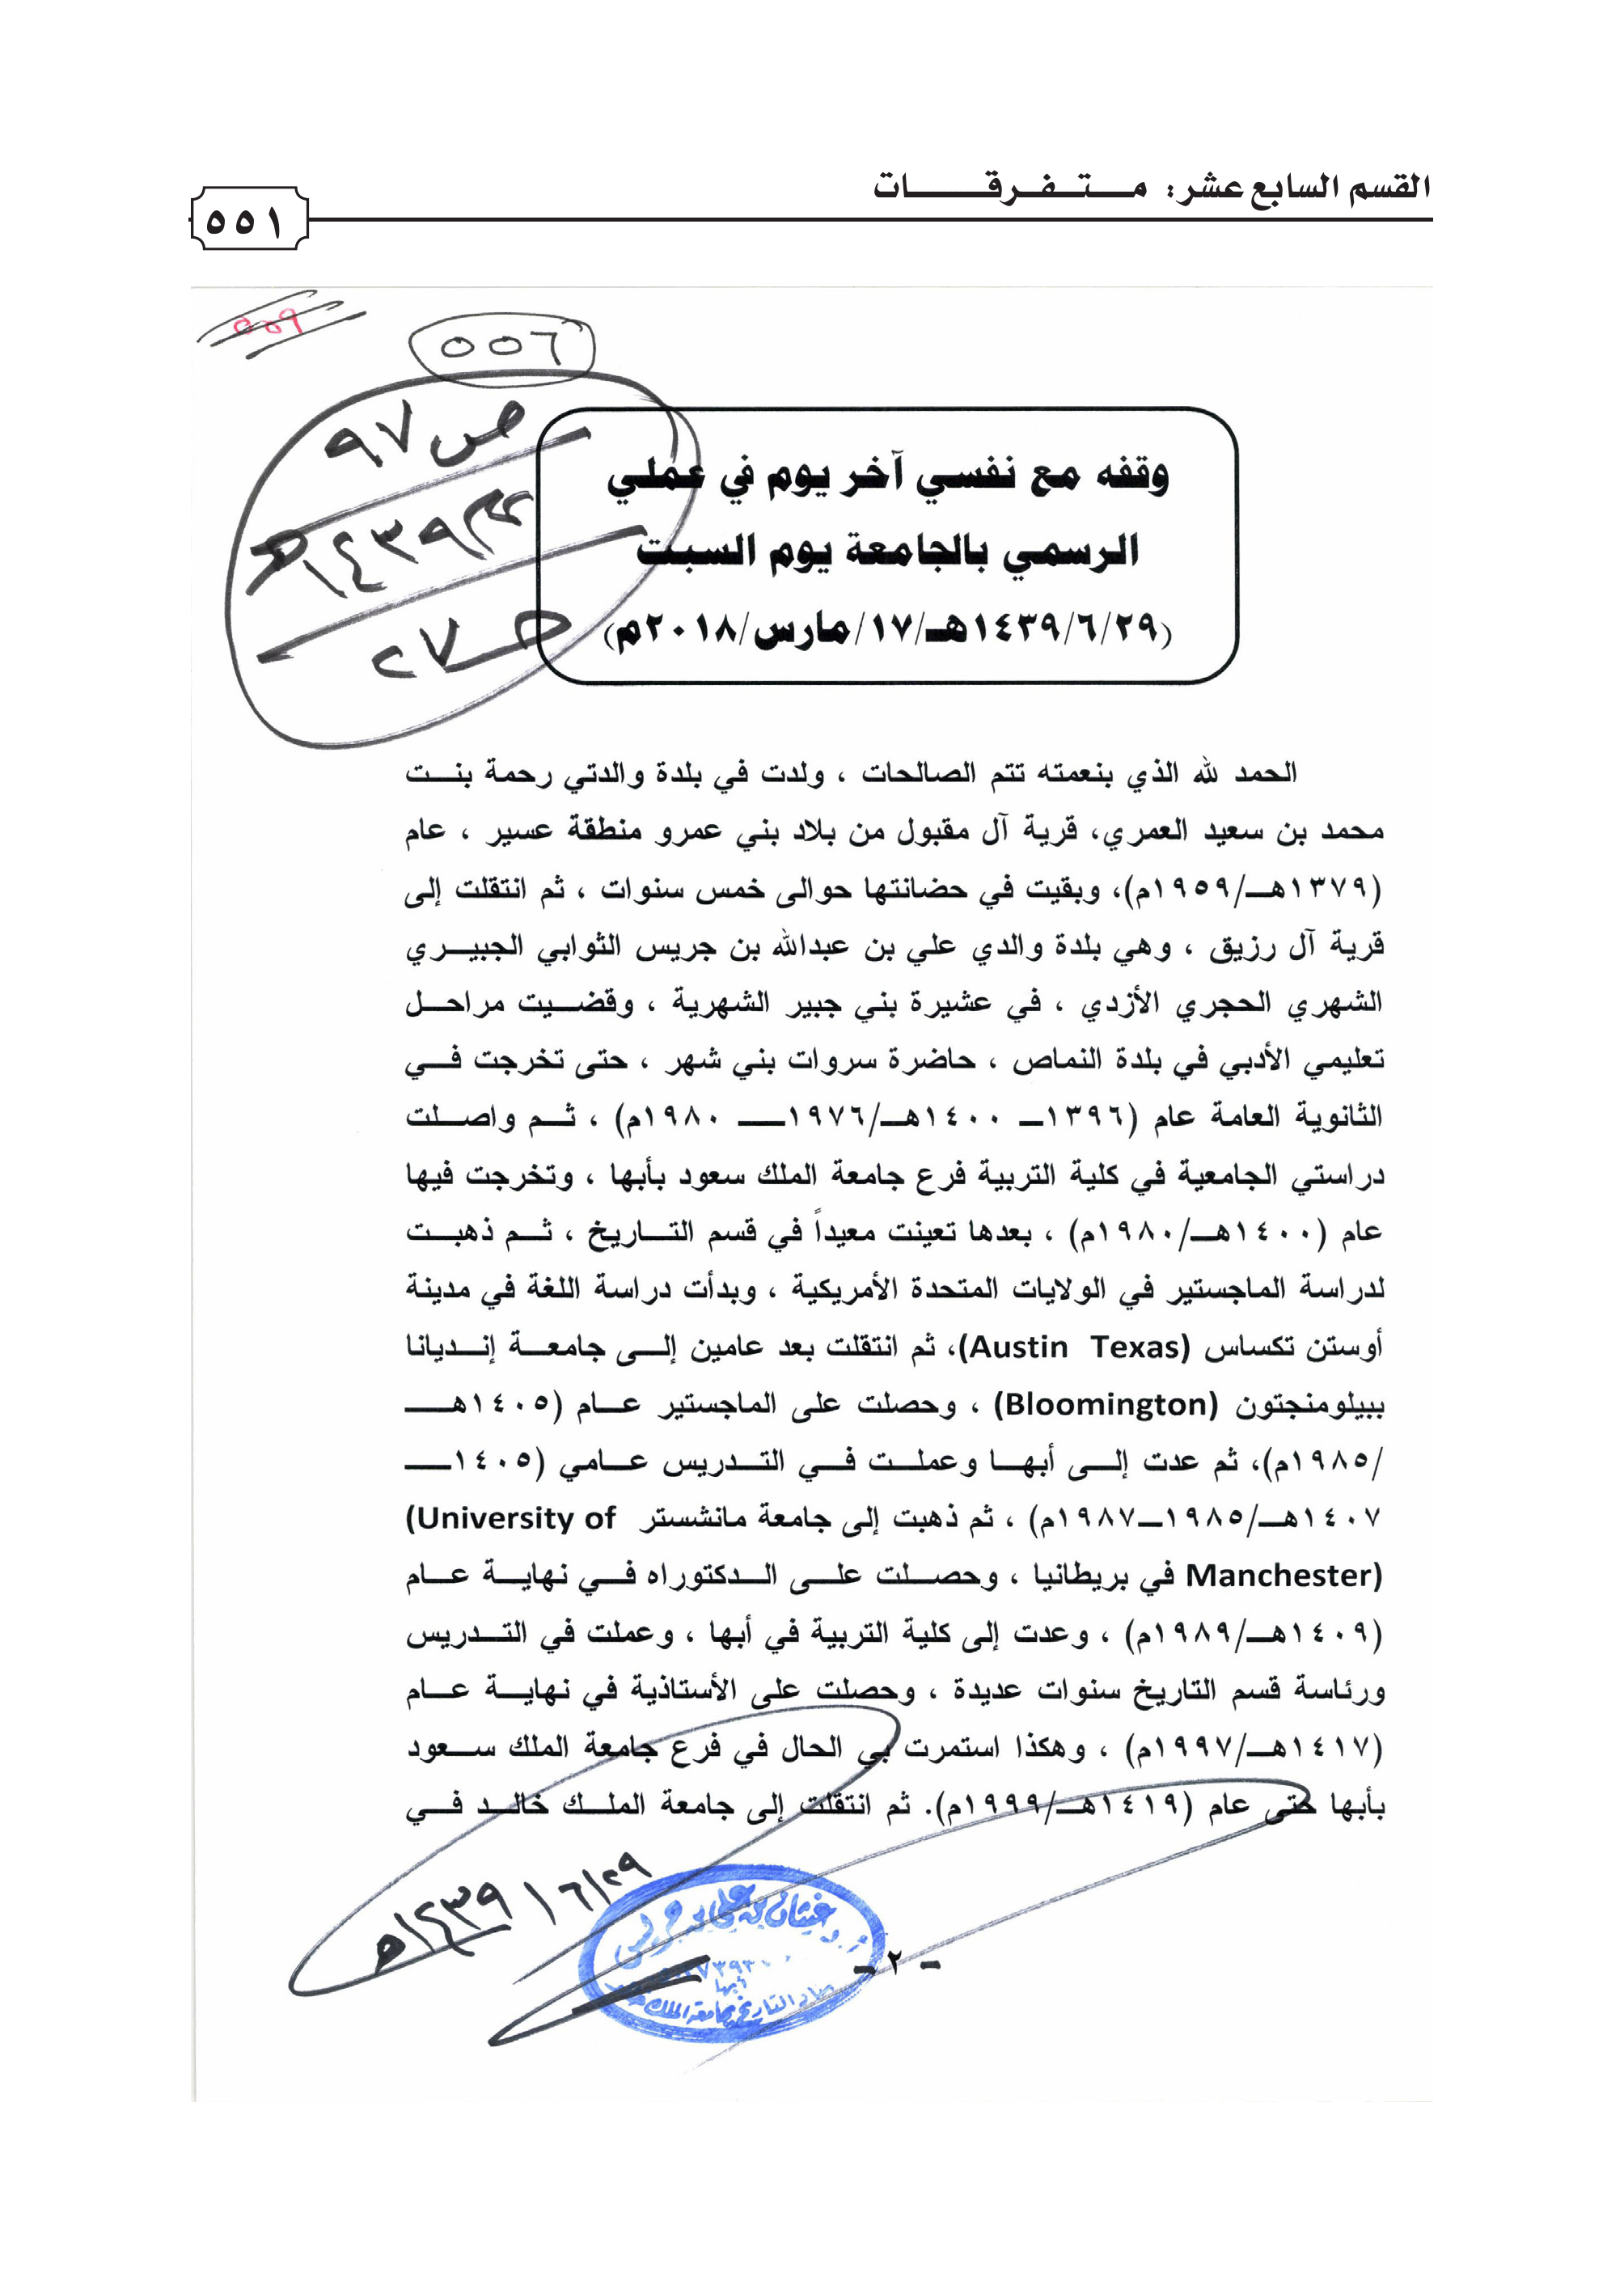 القسم السابع عشر: متفرقات
٥٥١
٥٥٩
٥٥٦
ص ٩٧
١٤٣٩هـ
حـ٢٧
وقفه مع نفسي آخر يوم في عملي
الرسمي بالجامعة يوم السبت
(١٤٣٩/٦/٢٩هـ/١٧/مارس/٢٠١٨م)
الحمد لله الذي بنعمته تتم الصالحات ، ولدت في بلدة والدتي رحمة بنت
محمد بن سعيد العمري، قرية آل مقبول من بلاد بني عمرو منطقة عسير ، عام
(١٣٧٩هـ/١٩٥٩م)، وبقيت في حضانتها حوالى خمس سنوات ، ثم انتقلت إلى
قرية آل رزيق ، وهي بلدة والدي علي بن عبدالله بن جريس الثوابي الجبيري
الشهري الحجري الأزدي ، في عشيرة بني جبير الشهرية ، وقضيت مراحل
تعليمي الأدبي في بلدة النماص ، حاضرة سروات بني شهر ، حتى تخرجت في
الثانوية العامة عام (١٣٩٦ـ ١٤٠٠هـ/١٩٧٦ـ ١٩٨٠م) ، ثم واصلت
دراستي الجامعية في كلية التربية فرع جامعة الملك سعود بأبها ، وتخرجت فيها
عام (١٤٠٠هـ/١٩٨٠م) ، بعدها تعينت معيداً في قسم التاريخ ، ثم ذهبت
لدراسة الماجستير في الولايات المتحدة الأمريكية ، وبدأت دراسة اللغة في مدينة
أوستن تكساس (Austin Texas)، ثم انتقلت بعد عامين إلى جامعة إنديانا
ببيلومنجتون (Bloomington) ، وحصلت على الماجستير عام (١٤٠٥هـ
/١٩٨٥م)، ثم عدت إلى أبها وعملت في التدريس عامي (١٤٠٥ـ
١٤٠٧هـ/١٩٨٥ـ١٩٨٧م) ، ثم ذهبت إلى جامعة مانشستر (University of
Manchester) في بريطانيا ، وحصلت على الدكتوراه في نهاية عام
(١٤٠٩هـ/١٩٨٩م) ، وعدت إلى كلية التربية في أبها ، وعملت في التدريس
ورئاسة قسم التاريخ سنوات عديدة ، وحصلت على الأستاذية في نهاية عام
(١٤١٧هـ/١٩٩٧م) ، وهكذا استمرت بي الحال في فرع جامعة الملك سعود
بأبها حتى عام (١٤١٩هـ/١٩٩٩م). ثم انتقلت إلى جامعة الملك خالد في
١٤٣٩/٦/٢٩هـ
أ.د غيثان بن علي بن جريس
أبها
التاريخ بجامعة الملك
- ٢ -